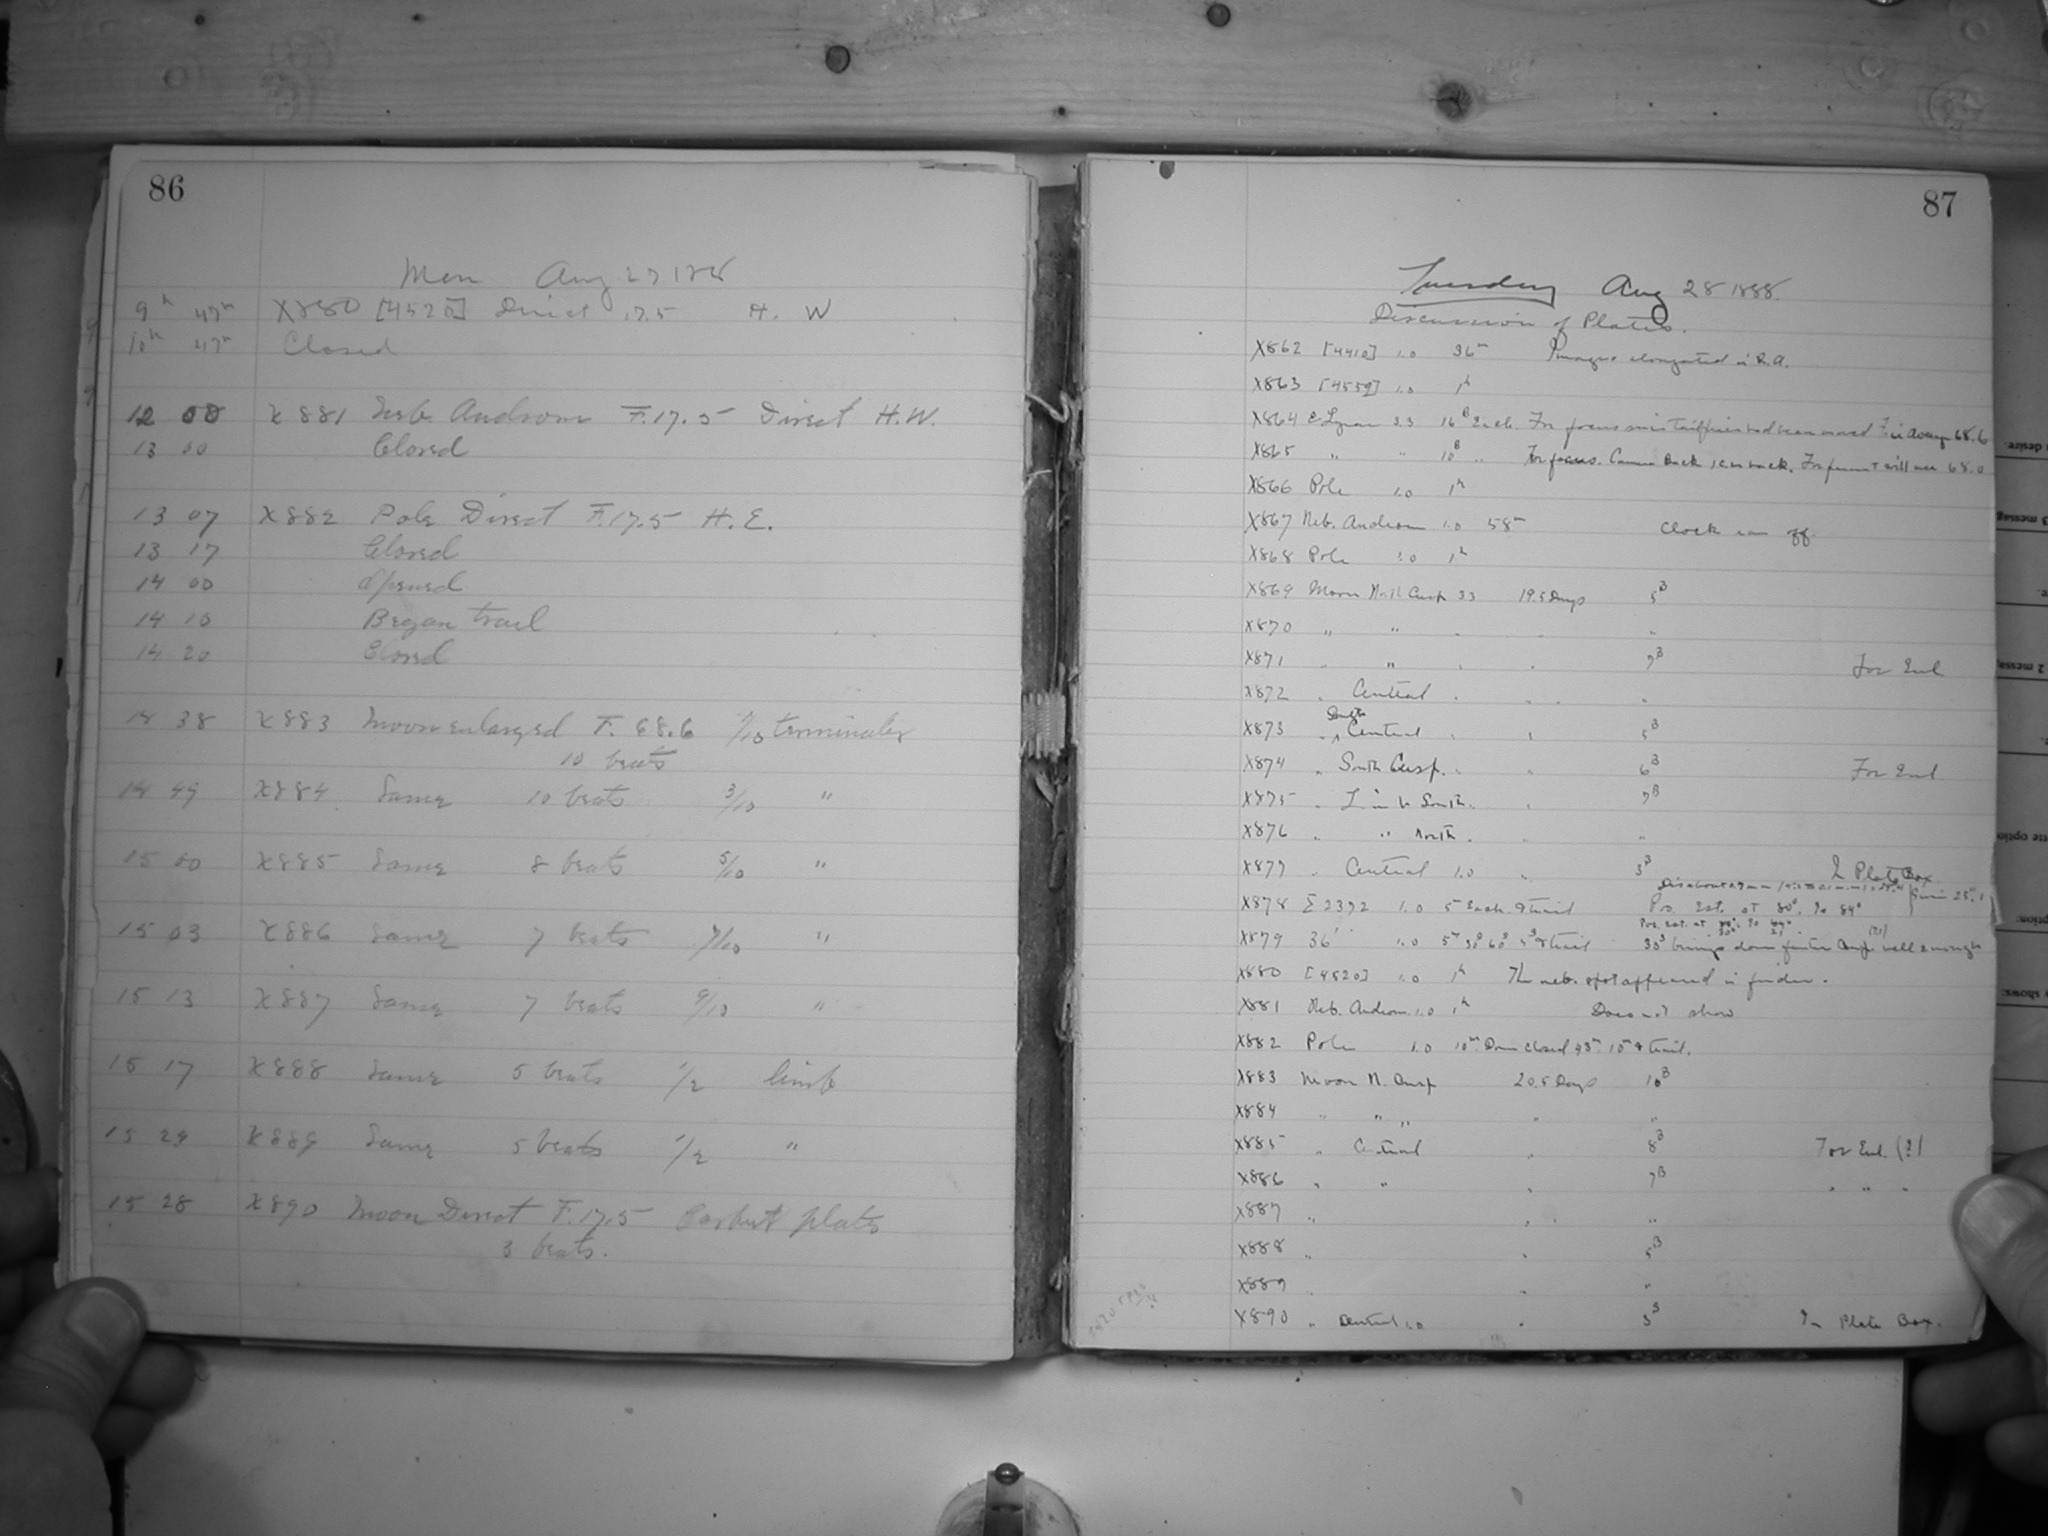 86
Mon Aug 27 1888
9h 47m X880 [4520] Direct 17.5 H. W
10h 47m Closed
12 00 X881 Neb. Androm F. 17.5 Direct H.W.
13 00 Closed
13 07 X882 Pole Direct F. 17.5 H.E.
13 17 Closed
14 00 Opened
14 10 Began trail
14 20 Closed
14 38 X883 Moon enlarged F. 68.6 1/10 terminator
10 beats
14 49 X884 Same 10 beats 3/10 "
15 00 X885 Same 8 beats 5/10 "
15 03 X886 Same 7 beats 7/10 "
15 13 X887 Same 7 beats 9/10 "
15 17 X888 Same 5 beats 1/2 limb
15 24 X889 Same 5 beats 1/2 "
15 28 X890 Moon Direct F. 17.5 Carbut plate
3 beats.
87
Tuesday Aug 28 1888.
Discussion of Plates.
X862 [4410] 1.0 36m Images elongated in R.A.
X863 [4559] 1.0 1h
X864 ε Lyrae 3.3 16B Each. For focus
X865 " " 10B " For focus. Camera Back
X866 Pole 1.0 1h
X867 Neb. Androm 1.0 58m Clock ran off
X868 Pole 1.0 1h
X869 Moon North Cusp 3.3 19.5 Days 5B
X870 " " " " "
X871 " " " " 7B For Enl
X872 " Central " " "
South
X873 " Central " " 5B
X874 " South Cusp. " " 6B For Enl
X875 " Limb South " " 7B
X876 " " North " " "
X877 " Central 1.0 " 3B In Plate Box
X878 Σ 2372 1.0 5m Each & trail Pos. Est. at 80°. Is 84°
X879 36' 1.0 & trail 30s brings down fainter Comp. well enough
X880 [4520] 1.0 1h The neb. spot appeared in finder.
X881 Neb. Androm. 1.0 1h Does not show
X882 Pole 1.0 10m Dom closed 43m 10m & trail.
X883 Moon N. Cusp 20.5 Days 10B
X884 " " " " "
X885 " Central " 8B For Enl. (?)
X886 " " " 7B " " "
X887 " " " "
X888 " " 5B
X889 " " "
X890 " Central 1.0 " 3B In Plate Box.